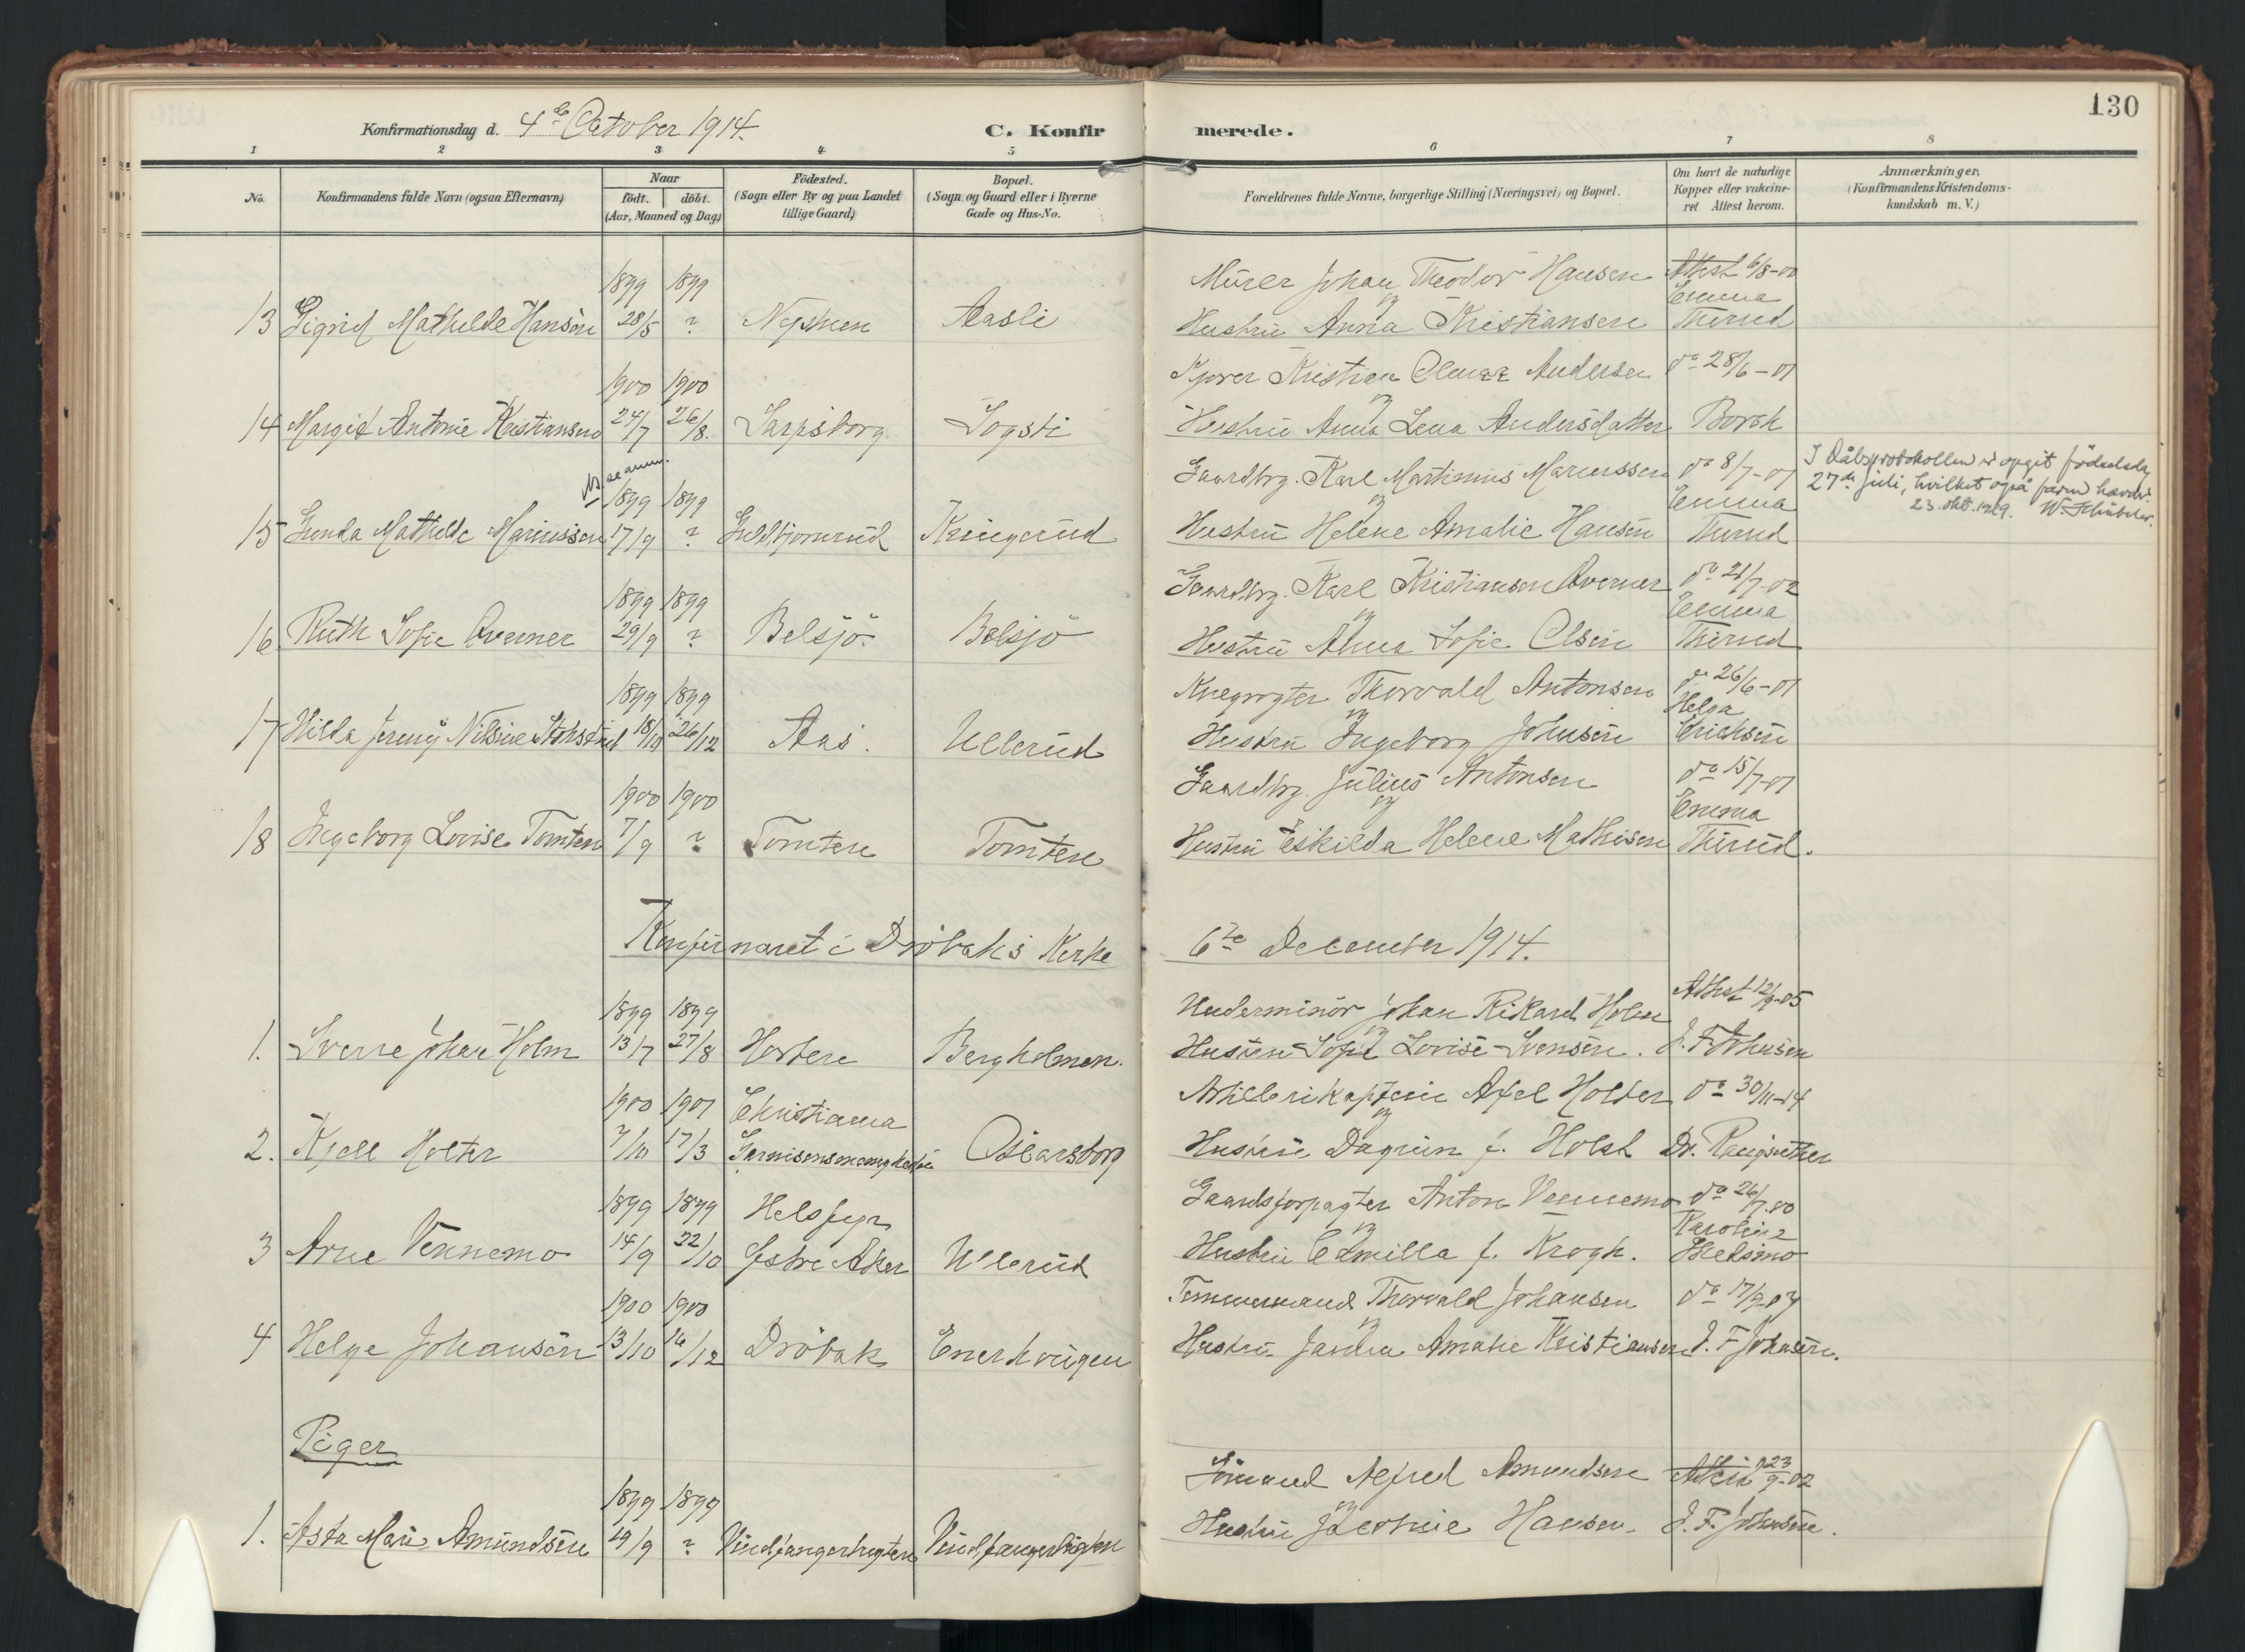 130
Konfirmationsdag d. 4de October 1914.
C. Konfirmerede.
1 2 3 4 5 6 7 8
No.
Konfirmandens fulde Navn (ogsaa Efternavn)
Naar
födt. döbt.
(Aar, Maaned og Dag)
Födested.
(Sogn eller By og paa Landet
tillige Gaard)
Bopæl.
(Sogn og Gaard eller i Byerne
Gade og Hus-No.
Forældrenes fulde Navne, borgerlige Stilling (Næringsvei) og Bopæl.
Om havt de naturlige
Kopper eller vakcine-
ret Attest herom.
Anmærkninger,
(Konfirmandens Kristendoms-
kundskab m. V.)
1899 1899 Murer Johan Theodor Hansen Attest 6/8-00
13 Sigrid Mathilde Hansen 28/5 ? Aasli og Hustru Anna Kristiansen Emma Thirud
1900 1900 Kristian Andersen do 28/6-01
14 Margit Antonie Kristiansen 24/7 26/8. Sarpsborg Sogsti og Hustru Anna Lena Andersdatter Borch
NB se anm.
1899 1899 Gaardbrg. Karl Martinius Mariussen do 8/7-01
15 Gunda Mathilde Mariussen 17/9 ? Kringerud og Hustru Helene Amalie Hansen Emma Thirud
I dåbsprotokollen er opgit fødselsdag
27de juli, hvilket også faren hævder.
23. okt. 1929. W.
1899 1899 Gaardbrg. Karl Kristiansen Qverner do 21/7-02
16 Ruth Sofie Qverner 29/9 ? Belsjö Belsjö og Hustru Sofie Olsen Emma Thirud
1899 1899 Thorvald Antonsen do 26/6-01
17 Hilda Jenny Nilsine 18/10 26/12 Aas. Ullerud og Hustru Ingeborg Johnsen Helga Erichsen
1900 1900 Gaardbrg. Julius Antonsen do 15/7-01
18 Ingeborg Lovise Tomten 7/9 ? Tomten Tomten og Hustru Eskilda Helene Mathisen Emma Thirud.
Konfirmaret i Dröbaks Kirke 6te December 1914.
1899 1899 Underminör Johan Rikard Holm Attest 12/9-05
1. Sverre Johan Holm 13/7 27/8 Horten Bergholmen. og Hustru Sofie Lovise Svensen. J. F. Johnsen
1900 1901 Christiania Artillerikaptein Axel Holter do 30/11-14
2. Kjell Holter 7/10 17/3 Garnisonsmenigheden Oscarsborg og Hustru Dagrun f. Holst Dr.
1899 1899 Helsfyr Gaardsforpagter Anton Vennemo do 26/7.00
3 Arne Vennemo 14/9 22/10 Østre Aker Ullerud og Hustru Camilla f. Krogh. Karoline Skedsmo
1900 1900 Tømmermand Thorvald Johansen do 17/9-07
4 Helge Johansen 13/10 16/12 Dröbak Enerhaugen og Hustru Amalie Kristiansen J. F. Johnsen.
Piger
1899 1899 Sömand Alfred Amundsen Attest 23/9-02
1. Asta Marie Amundsen 29/9 ? Vindfangerbugten Vindfangerbugten og Hustru Hansen. J. F. Johnsen.